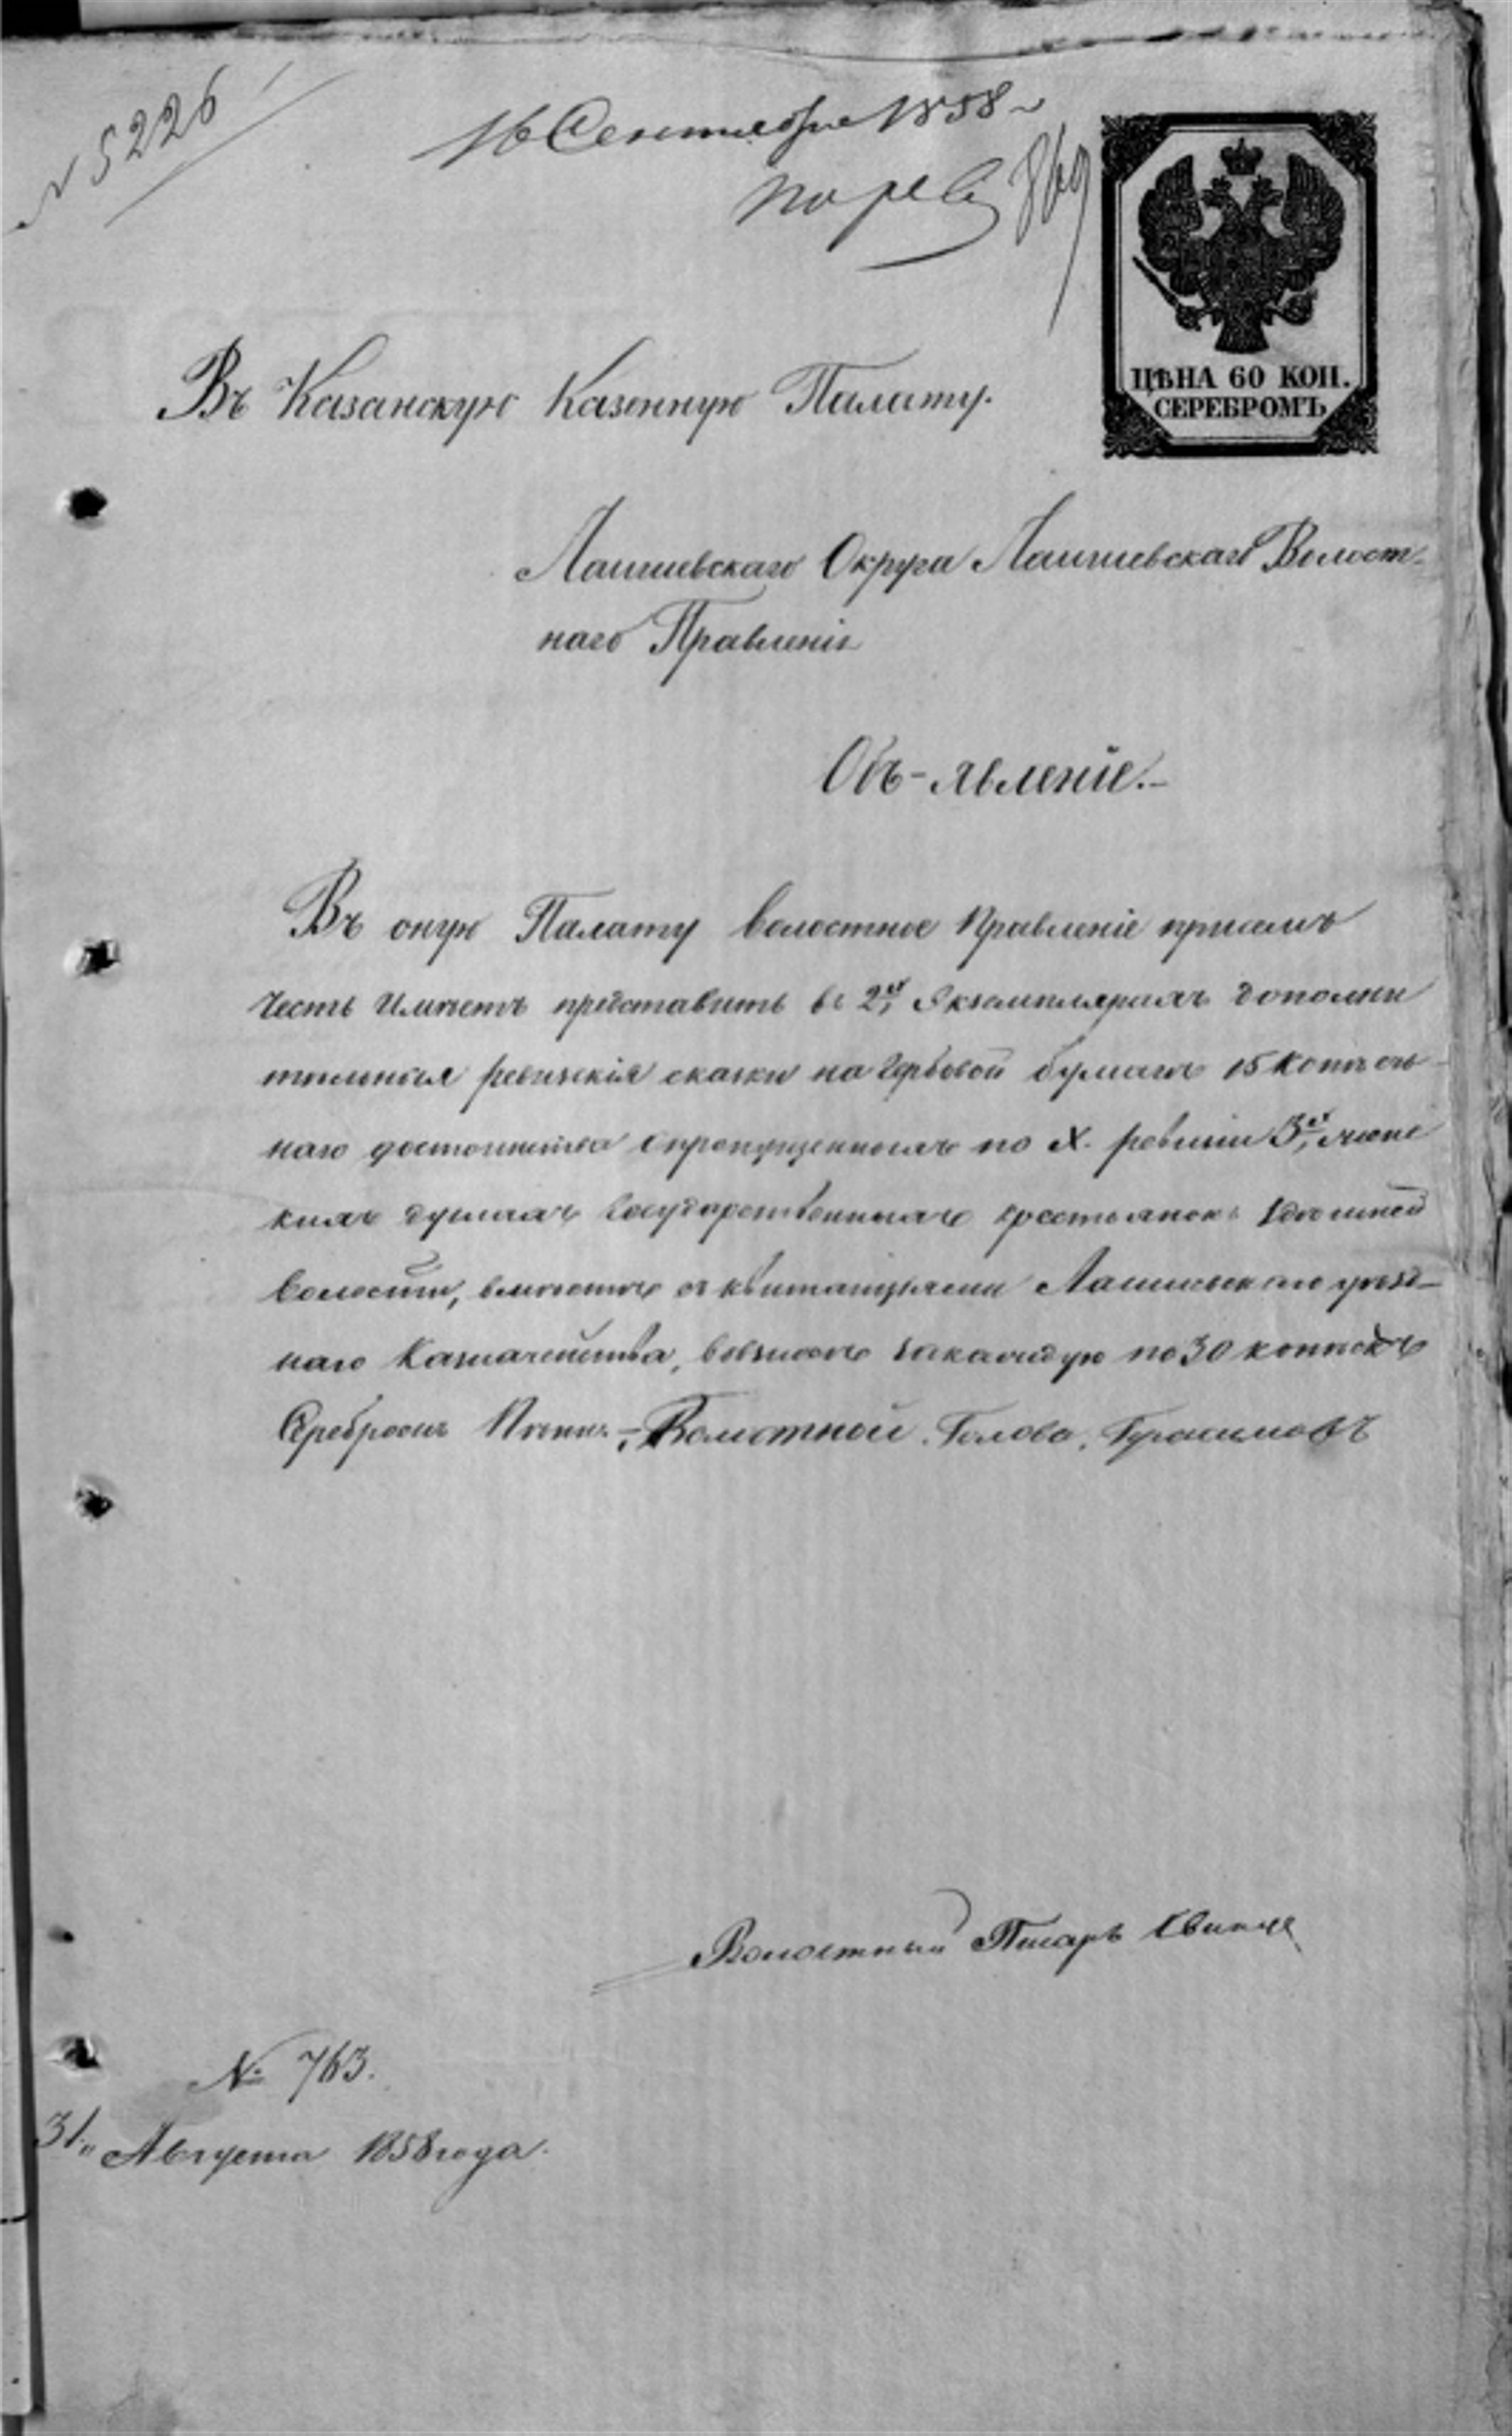 № 5226
16 Сентября 1858
по рев
869
ЦѢНА 60 КОП.
СЕРЕБРОМЪ
Въ Казанскую Казенную Палату.
Лаишевскаго Округа Лаишевскаго Волост-
наго Правленія
Объ-явленіе.-
Въ оную Палату Волостное Правленіе присемъ
честь имѣетъ представить въ 2х экземплярахъ дополни
тельныя ревизскія сказки на гербовой бумагѣ 15 копѣеч-
наго достоинства о пропущенныхъ по X. ревизіи 3х женс
кихъ душахъ Государственныхъ крестьянокъ здешней
волости, вместѣ съ квитанціями Лаишевскаго уѣзд-
наго Казначейства, во взносѣ за каждую по 30 копѣекъ
Серебромъ Пѣни. - Волостной Голова, Герасимовъ
Волостный Писарь
№ 763.
31 Августа 1858 года.